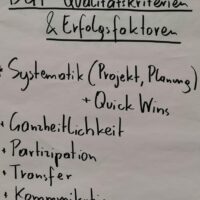 BGF Qualitätskriterien
& Erfolgsfaktoren
* Systematik (Projekt, Planung)
+ Quick Wins
+ Ganzheitlichkeit
+ Partizipation
+ Transfer
+ Kommunikation